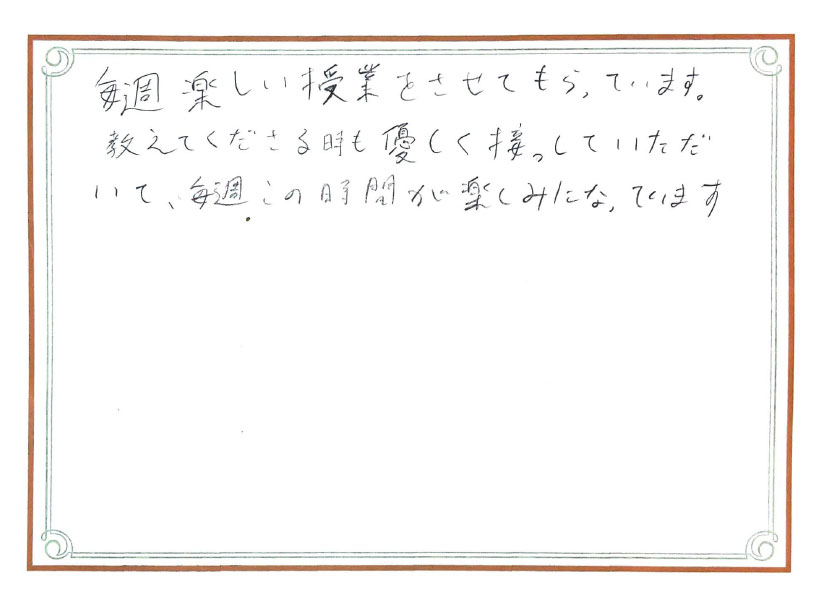 毎週 楽しい授業をさせてもらっています。
教えてくださる時も優しく接っしていただ
いて、毎週この時間が楽しみになっています